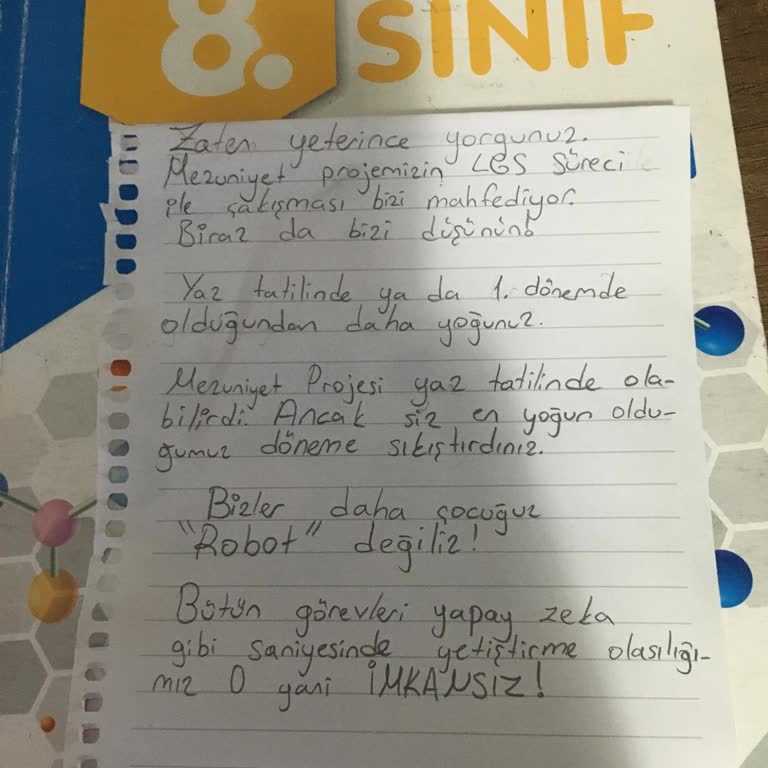 8. SINIF
Zaten yeterince yorgunuz.
Mezuniyet projemizin LGS Süreci
ile çakışması bizi mahfediyor.
Biraz da bizi düşünün!
Yaz tatilinde ya da 1. dönemde
olduğundan daha yoğunuz.
Mezuniyet Projesi yaz tatilinde ola-
bilirdi. Ancak siz en yoğun oldu-
ğumuz döneme sıkıştırdınız.
Bizler daha çocuğuz
"Robot" değiliz!
Bütün görevleri yapay zeka
gibi saniyesinde yetiştirme olasılığı-
mız 0 yani İMKANSIZ!